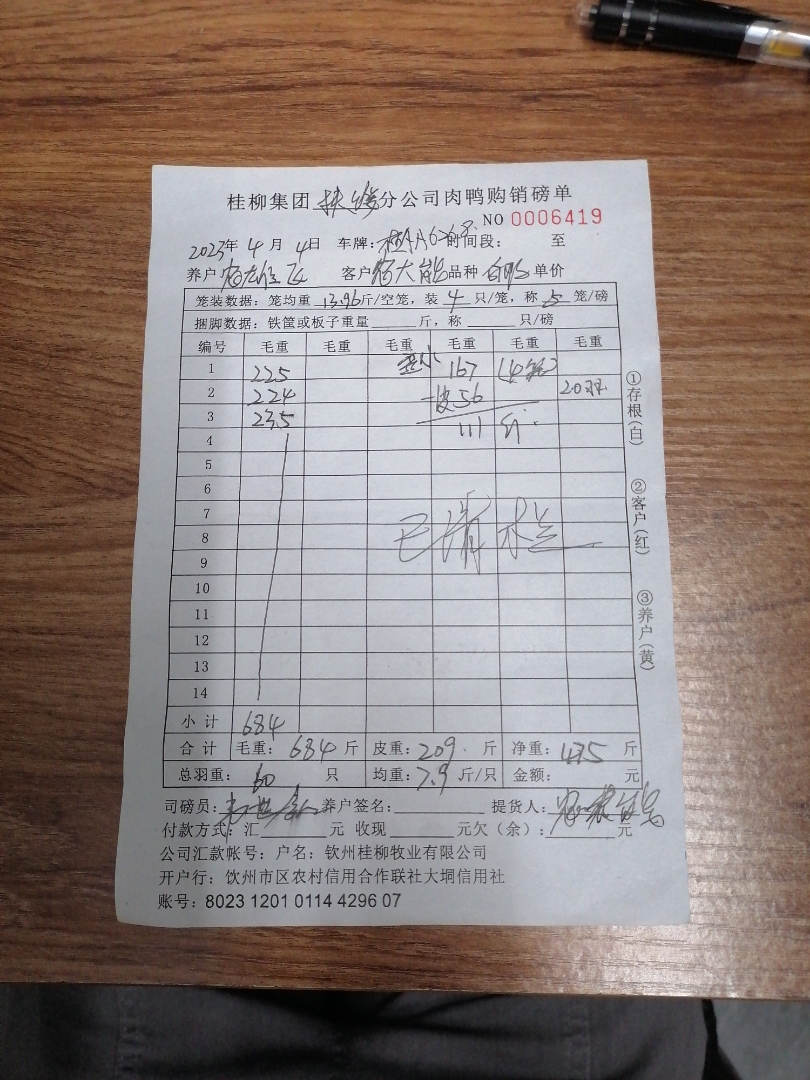 桂柳集团扶绥分公司肉鸭购销磅单
NO 0006419
2023年 4 月 4日 车牌: 时间段: 至
养户 客户 品种 白鸭 单价
笼装数据: 笼均重 13.96斤/空笼, 装 4 只/笼, 称 5 笼/磅
捆脚数据: 铁筐或板子重量 斤, 称 只/磅
编号 毛重 毛重 毛重 毛重 毛重 毛重
1 225 167 (4笼)
2 224 -皮56 20羽
3 235 111 斤
4
5
6
7
8
9
10
11
12
13
14
小计 684
合计 毛重: 684 斤 皮重: 209. 斤 净重: 475 斤
总羽重: 60 只 均重: 7.9 斤/只 金额: 元
司磅员: 养户签名: 提货人:
付款方式: 汇 元 收现 元欠(余): 元
公司汇款帐号: 户名: 钦州桂柳牧业有限公司
开户行: 钦州市区农村信用合作联社大垌信用社
账号: 8023 1201 0114 4296 07
①存根(白)
②客户(红)
③养户(黄)